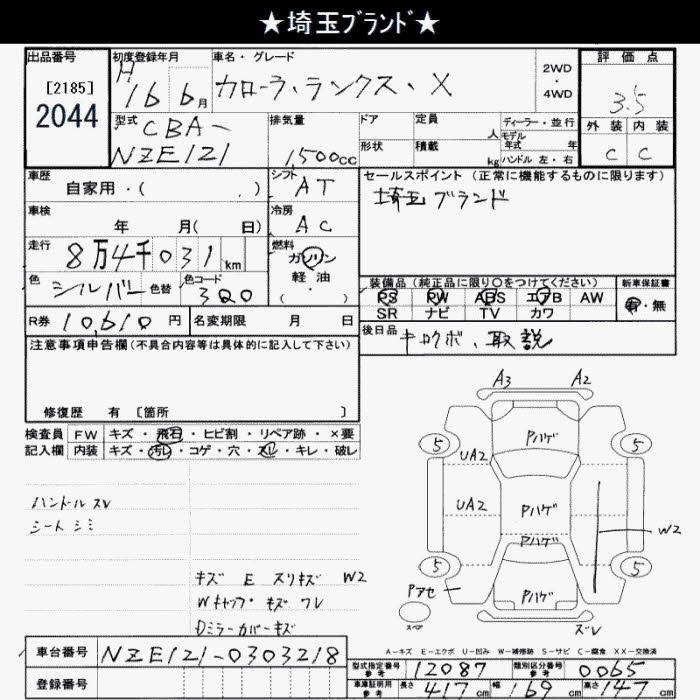 ★埼玉ﾌﾞﾗﾝﾄﾞ★
出品番号
[2185]
2044
初度登録年月
H 16 6月
車名・グレード
カローラ・ランクス・X
2WD
・
4WD
評価点
3.5
外装 内装
C C
型式
CBA-
NZE121
排気量
1,500cc
ドア
定員
人
形状
積載
kg
ディーラー・並行
モデル
年式 年
ハンドル 左・右
車歴
自家用・( )
シフト
AT
セールスポイント (正常に機能するものに限ります)
埼玉ブランド
車検
年 月( 日)
冷房
AC
走行
8万4千031km
燃料
ガソリン
軽油
・
( )
色
シルバー
色替
色コード
3Q0
装備品 (純正品に限り○をつけてください)
PS PW ABS エアB AW
SR ナビ TV カワ
新車保証書
有・無
R券 10,610円
名変期限 月 日
後日品
キロクボ、取説
注意事項申告欄(不具合内容等は具体的に記入して下さい)
修復歴 有 [箇所 ]
検査員
記入欄
FW キズ・飛石・ヒビ割・リペア跡・×要
内装 キズ・汚レ・コゲ・穴・スレ・キレ・破レ
ハンドルスレ
シートシミ
キズ E スリキズ W2
Wキャップ キズ ワレ
Dミラーカバーキズ
A3 A2
Pハゲ
5 5
UA2
UA2
Pハゲ
Pハゲ
W2
5 5
Pアセ
Pハゲ
スペア
ズレ
A-キズ E-エクボ U-凹み W-補修跡 S-サビ C-腐食 XX-交換済
車台番号 NZE121-0303218
登録番号
型式指定番号
参考
12087
類別区分番号
参考
0065
車庫証明用
参考
長さ 417cm 幅 169cm 高さ 147cm